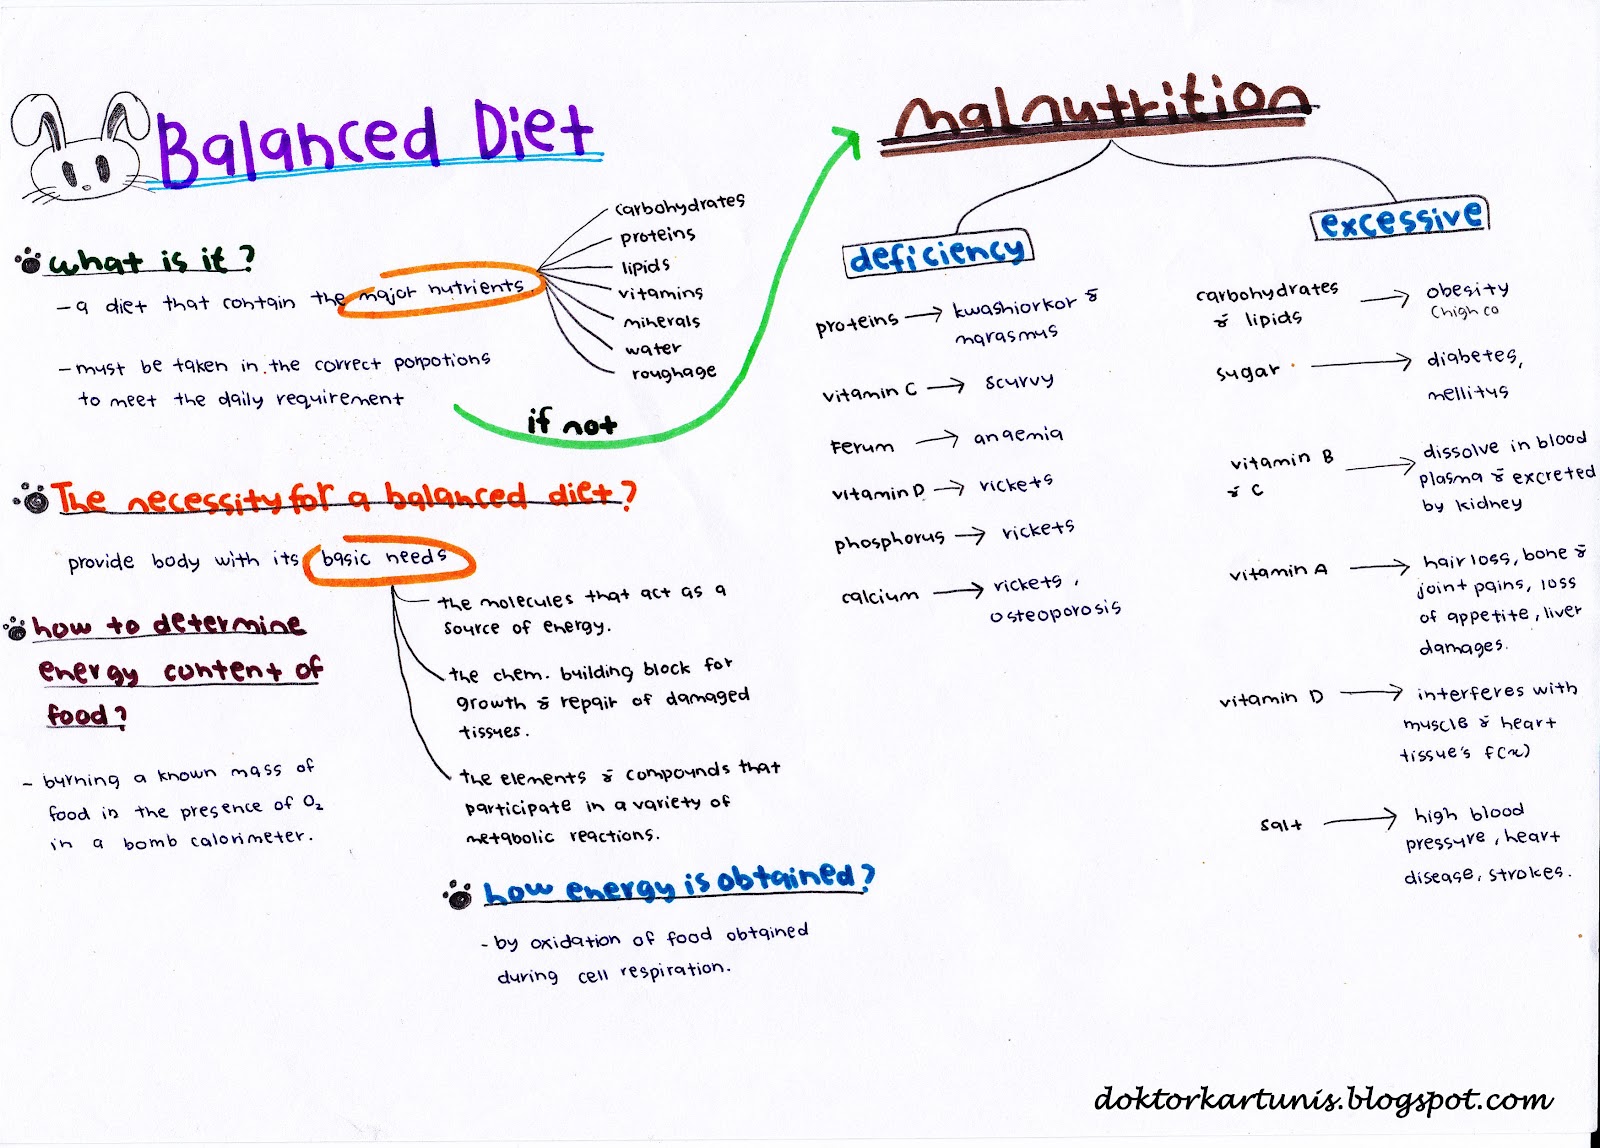 Balanced Diet
what is it?
- a diet that contain the major nutrients.
carbohydrates
proteins
lipids
vitamins
minerals
water
roughage
- must be taken in the correct porpotions
to meet the daily requirement
if not
The necessity for a balanced diet?
provide body with its basic needs
the molecules that act as a
source of energy.
the chem. building block for
growth & repair of damaged
tissues.
the elements & compounds that
participate in a variety of
metabolic reactions.
how to determine
energy content of
food?
- burning a known mass of
food in the presence of O₂
in a bomb calorimeter.
how energy is obtained?
- by oxidation of food obtained
during cell respiration.
malnutrition
deficiency
proteins → kwashiorkor &
marasmus
vitamin C → scurvy
Ferum → anaemia
vitamin D → rickets
phosphorus → rickets
calcium → rickets,
osteoporosis
excessive
carbohydrates → obesity
& lipids
sugar → diabetes,
mellitus
vitamin B → dissolve in blood
& C plasma & excreted
by kidney
vitamin A → hair loss, bone &
joint pains, loss
of appetite, liver
damages.
vitamin D → interferes with
muscle & heart
tissue's f(x)
salt → high blood
pressure, heart
disease, strokes.
doktorkartunis.blogspot.com